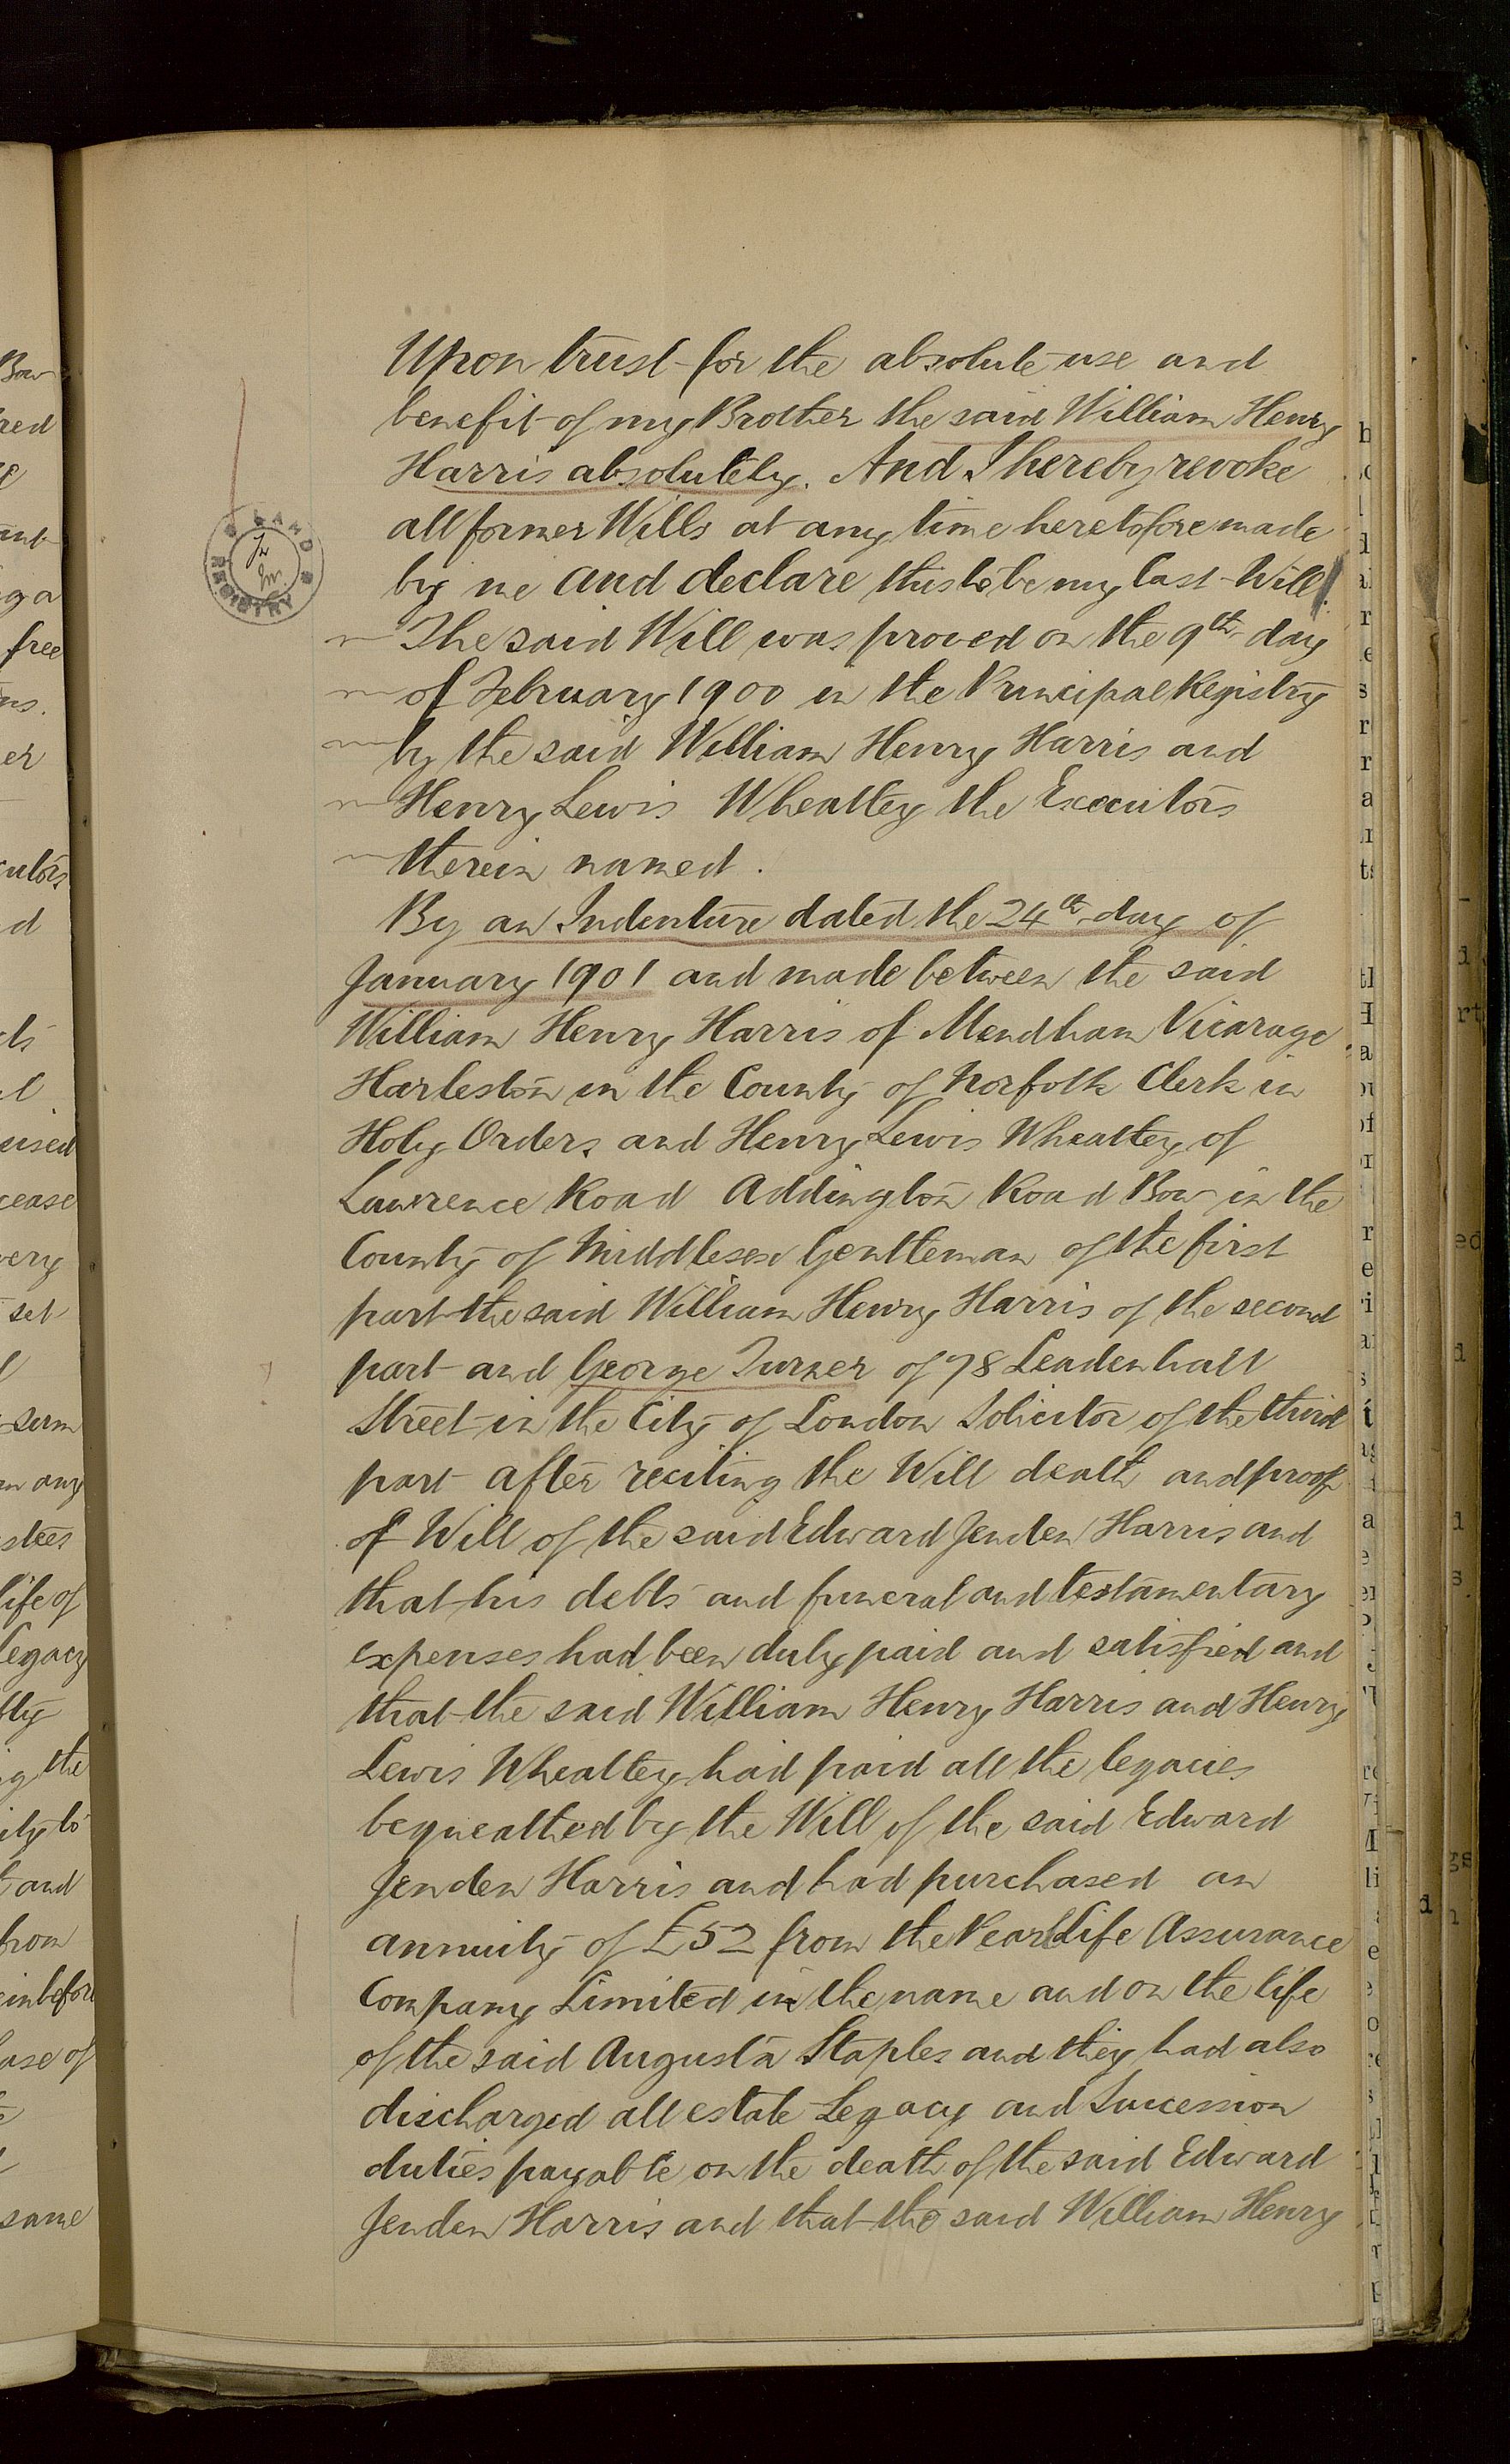 Upon trust for the absolute use and
benefit of my Brother the said William Henry
Harris absolutely. And I hereby revoke
all former Wills at any time heretofore made
by me and declare this to be my last Will.
The said Will was proved on the 9th day
of February 1900 in the Principal Registry
by the said William Henry Harris and
Henry Lewis Wheatley the Executors
therein named.
By an Indenture dated the 24th day of
January 1901 and made between the said
William Henry Harris of Mendham Vicarage
Harleston in the County of Norfolk Clerk in
Holy Orders and Henry Lewis Wheatley of
Lawrence Road Addington Road Bow in the
County of Middlesex Gentleman of the first
part the said William Henry Harris of the second
part and George Turner of 78 Leadenhall
Street in the City of London Solicitor of the third
part after reciting the Will death and proof
of Will of the said Edward Jenden Harris and
that his debts and funeral and testamentary
expenses had been duly paid and satisfied and
that the said William Henry Harris and Henry
Lewis Wheatley had paid all the legacies
bequeathed by the Will of the said Edward
Jenden Harris and had purchased an
annuity of £52 from the Pearl Life Assurance
Company Limited in the name and on the life
of the said Augusta Staples and they had also
discharged all estate Legacy and Succession
duties payable on the death of the said Edward
Jenden Harris and that the said William Henry
LAND REGISTRY